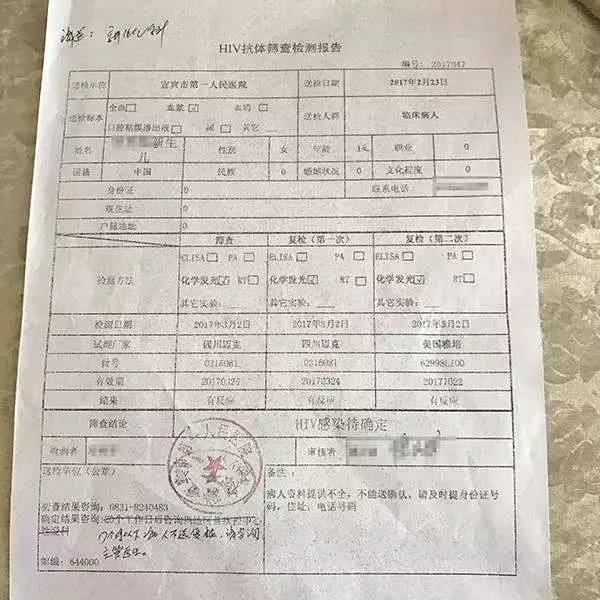 HIV抗体筛查检测报告
编号: 2017047
送检单位 宜宾市第一人民医院 送检日期 2017年2月23日
送检标本 全血□ 血浆☑ 血清□ 口腔粘膜渗出液□ 尿□ 其它 送检人群 临床病人
姓名 新生儿 性别 女 年龄 1天 职业 0
国籍 中国 民族 0 婚姻状况 0 文化程度 0
身份证 0 联系电话
现住址 0
户籍地址 0
筛查 复检(第一次) 复检(第二次)
检测方法
ELISA□ PA□ ELISA□ PA□ ELISA□ PA□
化学发光☑ RT□ 化学发光☑ RT□ 化学发光☑ RT□
其它实验: 其它实验: 其它实验:
检测日期 2017年3月2日 2017年3月2日 2017年3月2日
试剂厂家 四川迈克 四川迈克 美国雅培
批号 0316081 0316081 62998LI00
有效期 20170324 20170324 20171022
结果 有反应 有反应 有反应
筛查结论 HIV感染待确定
检测者 审核者
送检单位(公章) 备注:
病人资料提供不全,不能送确认,请及时提身份证号
码,住址,电话号码
初查结果咨询: 0831-8240483
确定结果咨询: 20个工作日后咨询
邮编: 644000